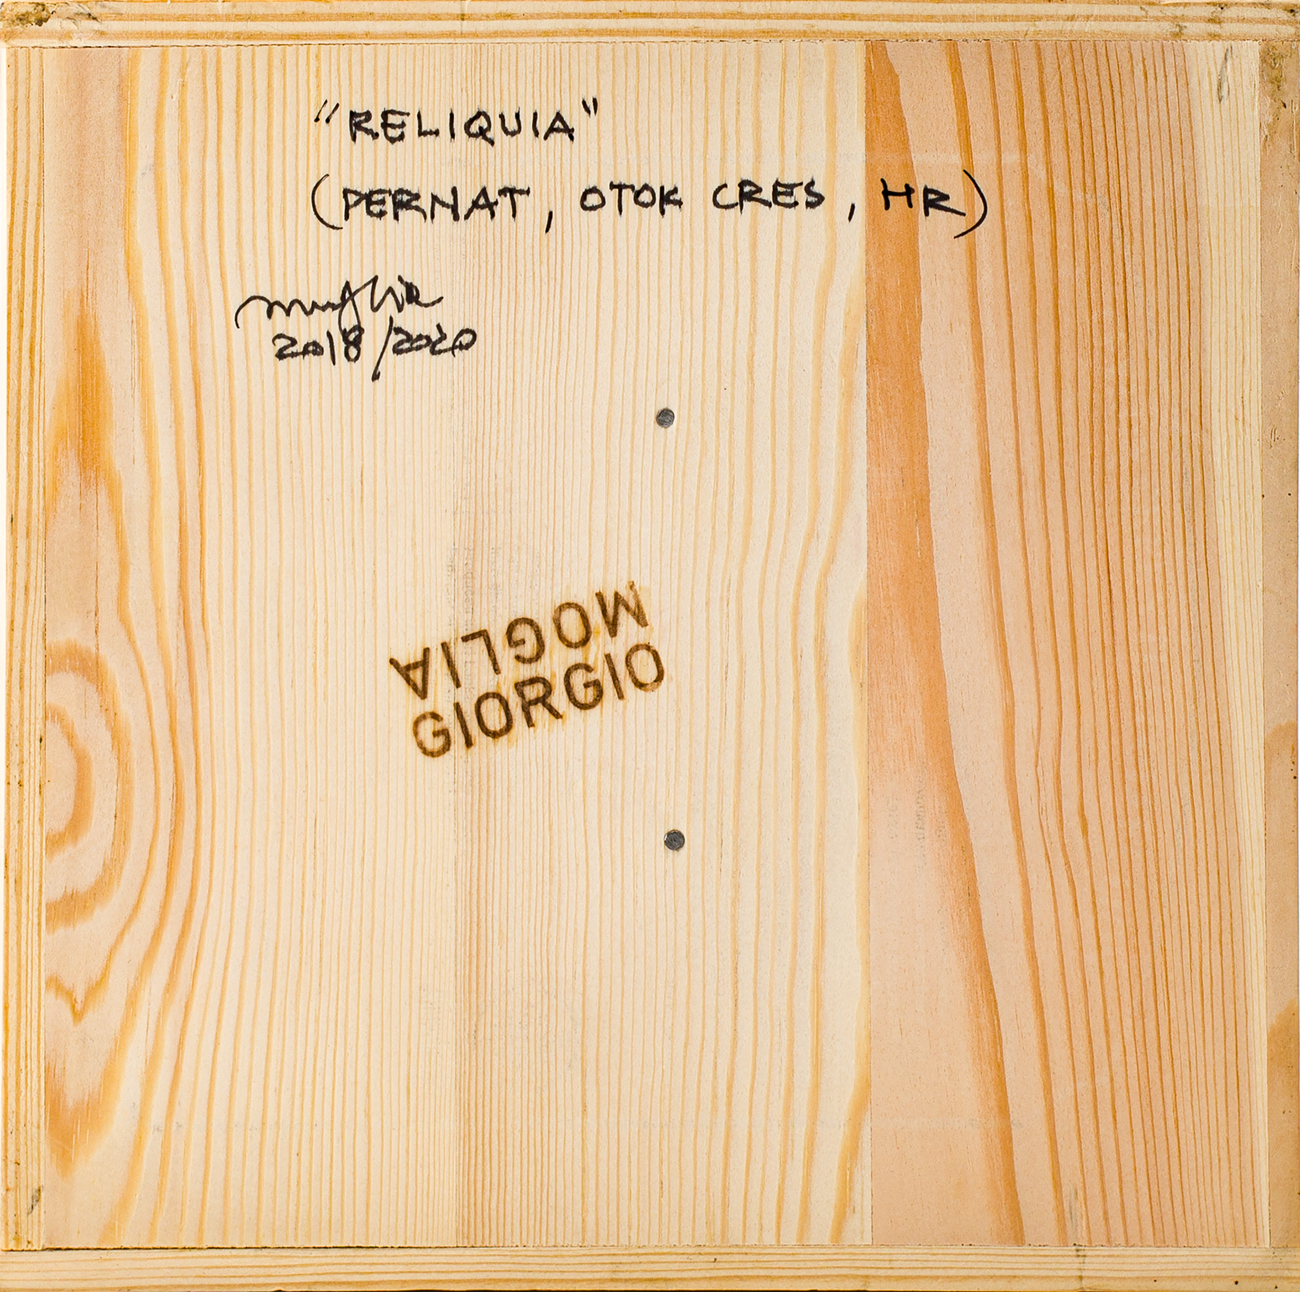 "RELIQUIA"
(PERNAT, OTOK CRES, HR)
2018/2020
MOGLIA
GIORGIO